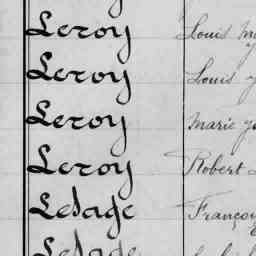 Leroy Louis
Leroy Louis
Leroy Marie
Leroy Robert
Lesage François
Lesage